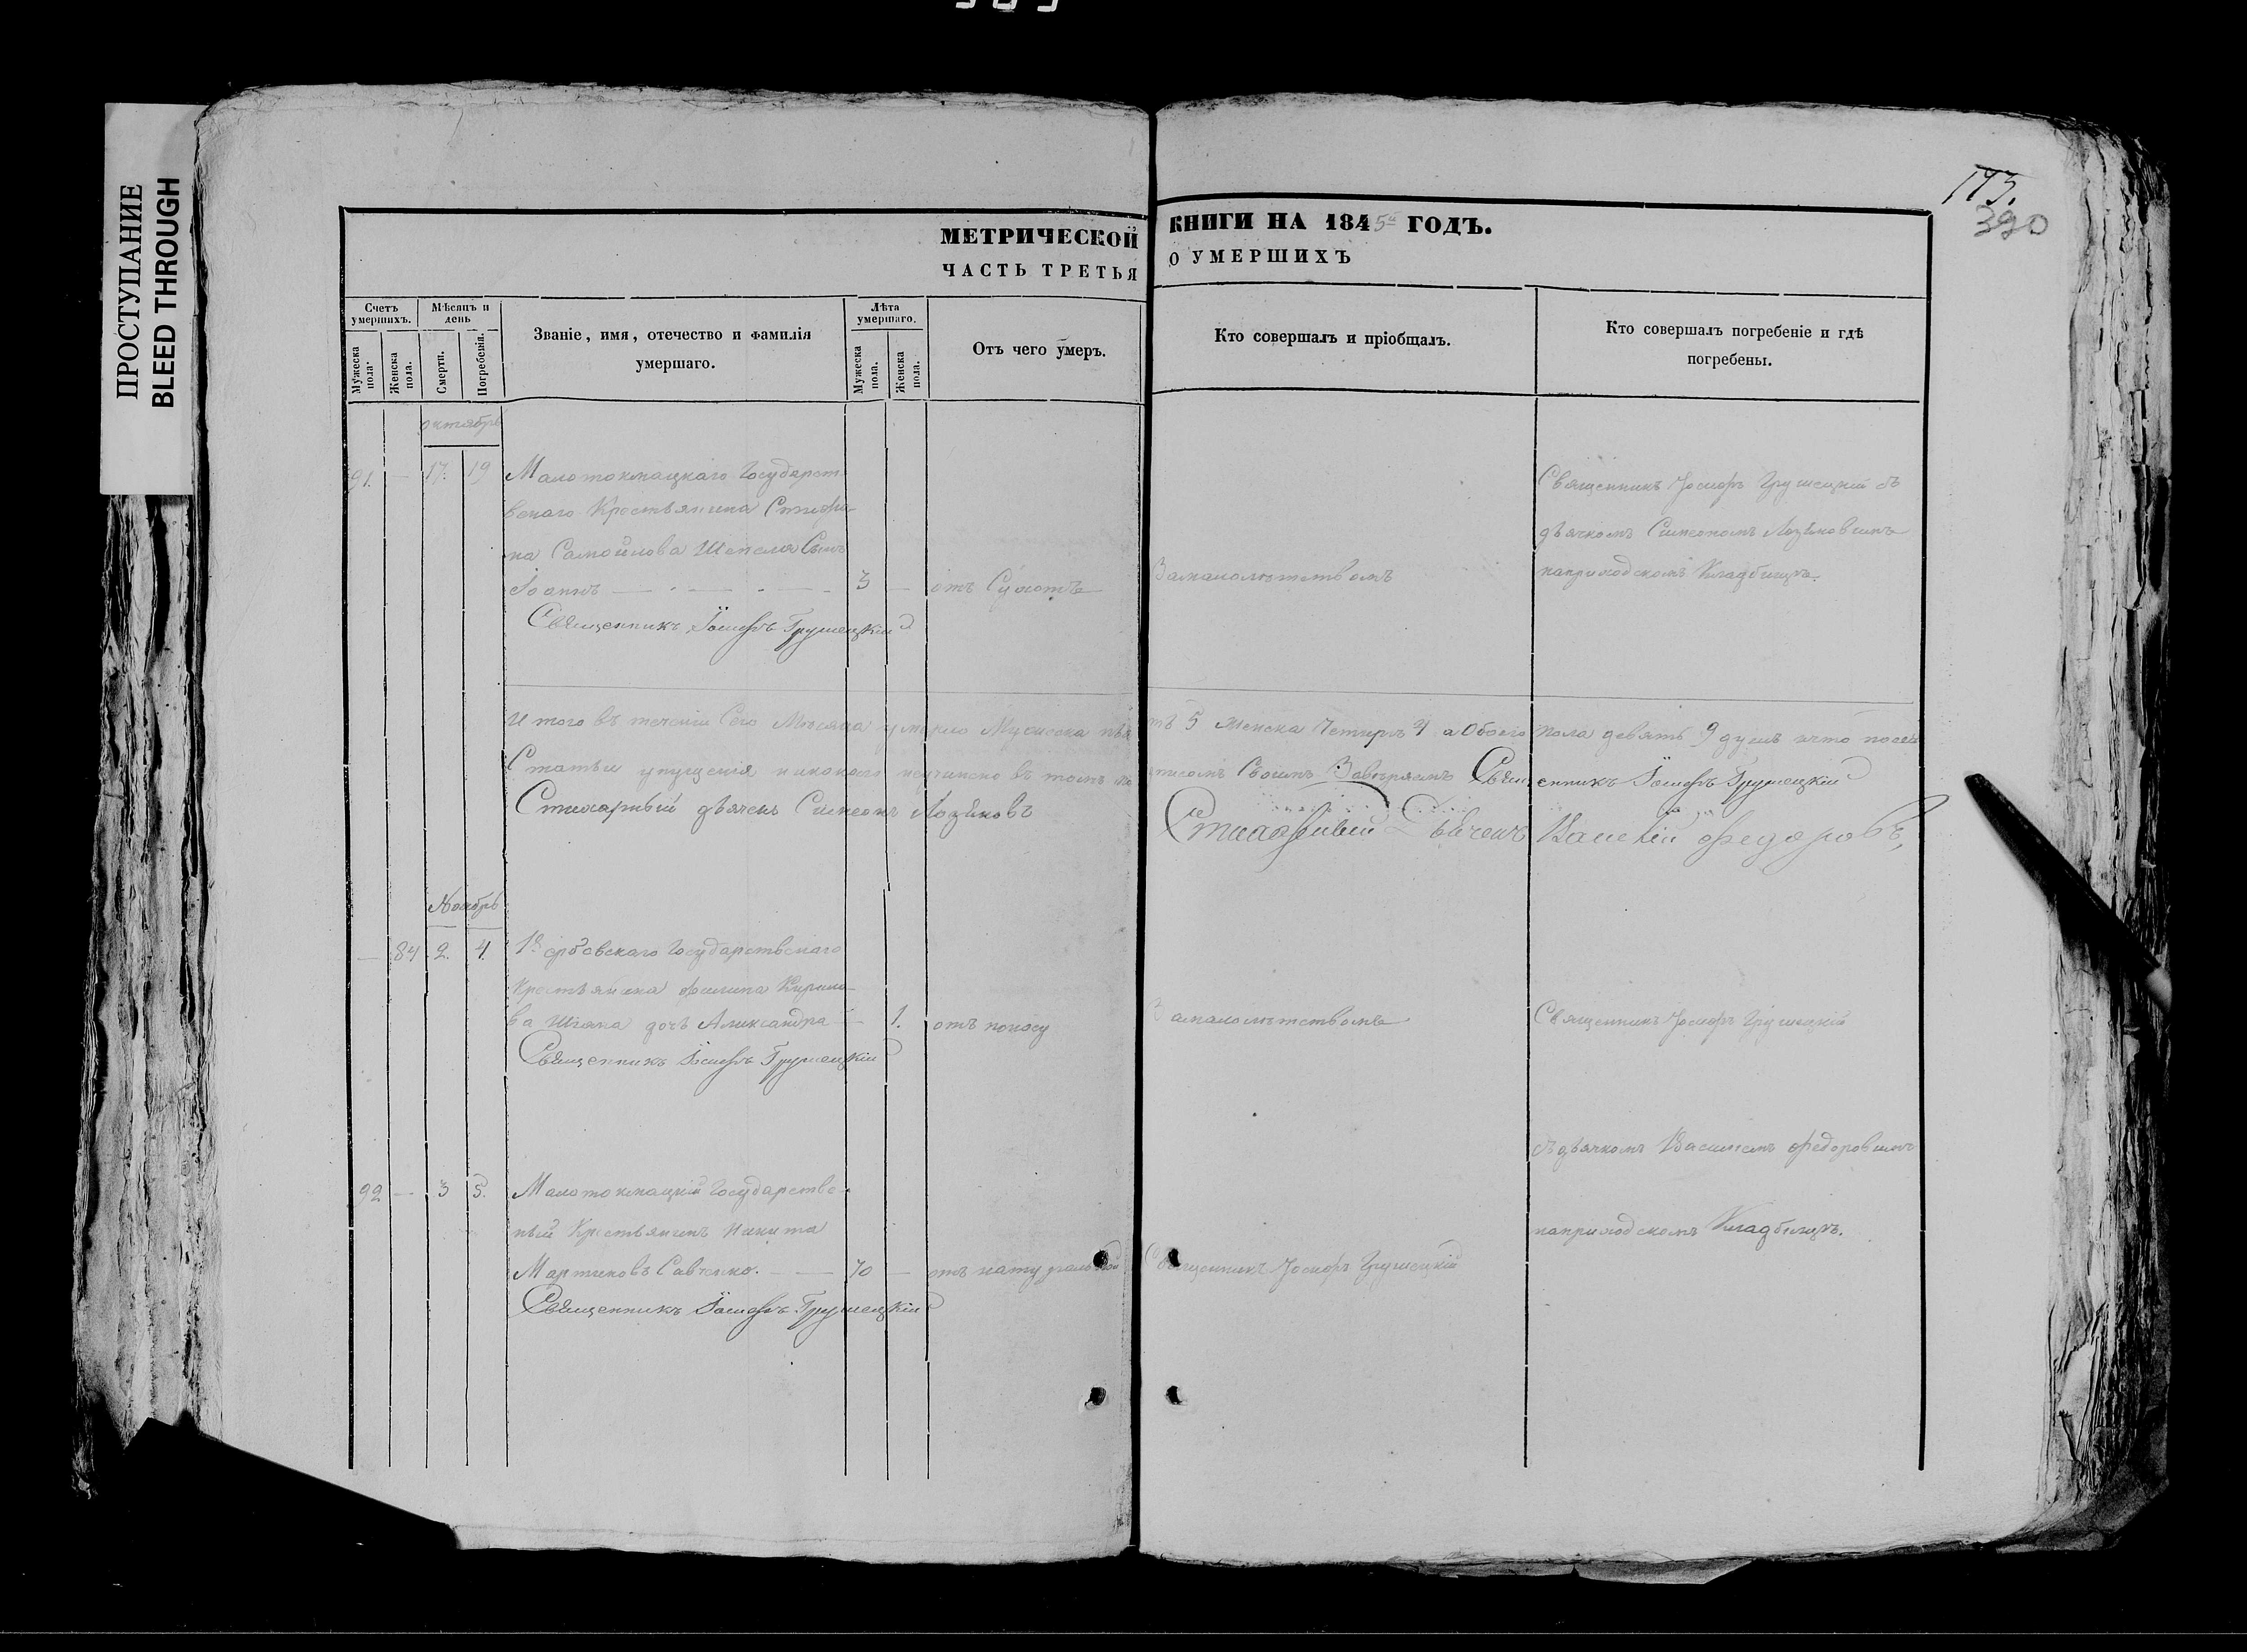 ПРОСТУПАНИЕ
BLEED THROUGH
193.
390
МЕТРИЧЕСКОЙ КНИГИ НА 1845й ГОДЪ.
ЧАСТЬ ТРЕТЬЯ О УМЕРШИХЪ
Счетъ умершихъ.
Мужеска пола.
Женска пола.
Мѣсяцъ и день
Смерти.
Погребенія.
Званіе, имя, отечество и фамилія
умершаго.
Лѣта умершаго.
Мужеска пола.
Женска пола.
Отъ чего умеръ.
Кто совершалъ и пріобщалъ.
Кто совершалъ погребеніе и гдѣ
погребены.
октябрь
91. — 17. 19 Малотокмацкаго Государст-
венаго Крестьянина Стефа-
на Самойлова Шепеля Сынъ
Іоаннъ — 3 — отъ Сухотъ
Замалолѣтствомъ
Священникъ Іосифъ Грушецкій съ
дьячкомъ Симеономъ Лозѣновимъ
наприходскомъ Кладбищѣ.
Священникъ Іосифъ Грушецкій
Итого въ теченіи Сего Мѣсяца умерло Мужеска пять 5 женска Четыре 4 а Обоего пола девять 9 душъ ачто посей
Статьи упущенія никакого неучинено въ томъ подписомъ Своимъ Завѣряемъ Священникъ Іосифъ Грушецкій
Стихарный дьячекъ Симеонъ Лозѣновъ
Стихарный Дьячекъ Василій Федоровъ,
Ноябрь
— 84 2. 4. Государственаго
Крестьянина Филипа Кирило-
ва Шіяна дочь Александра — 1. отъ поносу
Замалолѣтствомъ
Священникъ Іосифъ Грушецкій
Священникъ Іосифъ Грушецкій
съ дьячкомъ Василіемъ Федоровимъ
наприходскомъ Кладбищѣ.
92 — 3 5. Малотокмацкій Государстве-
ный Крестьянинъ Никита
Мартиновъ Савченко. — 70 — отъ натуральной
Священникъ Іосифъ Грушецкій
Священникъ Іосифъ Грушецкій